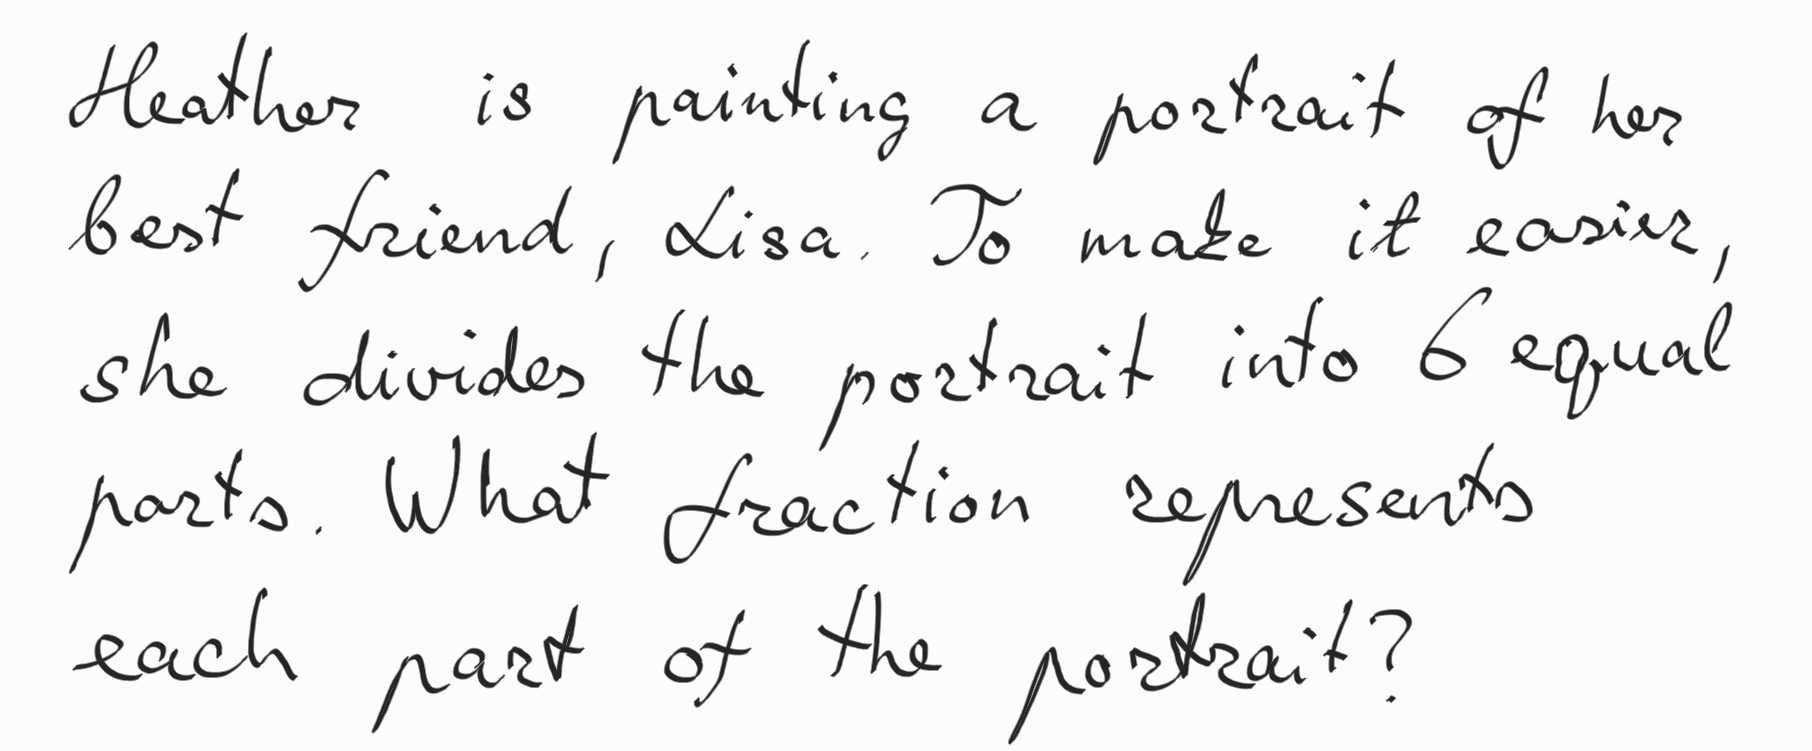 Heather is painting a portrait of her
best friend, Lisa. To make it easier,
she divides the portrait into 6 equal
parts. What fraction represents
each part of the portrait?